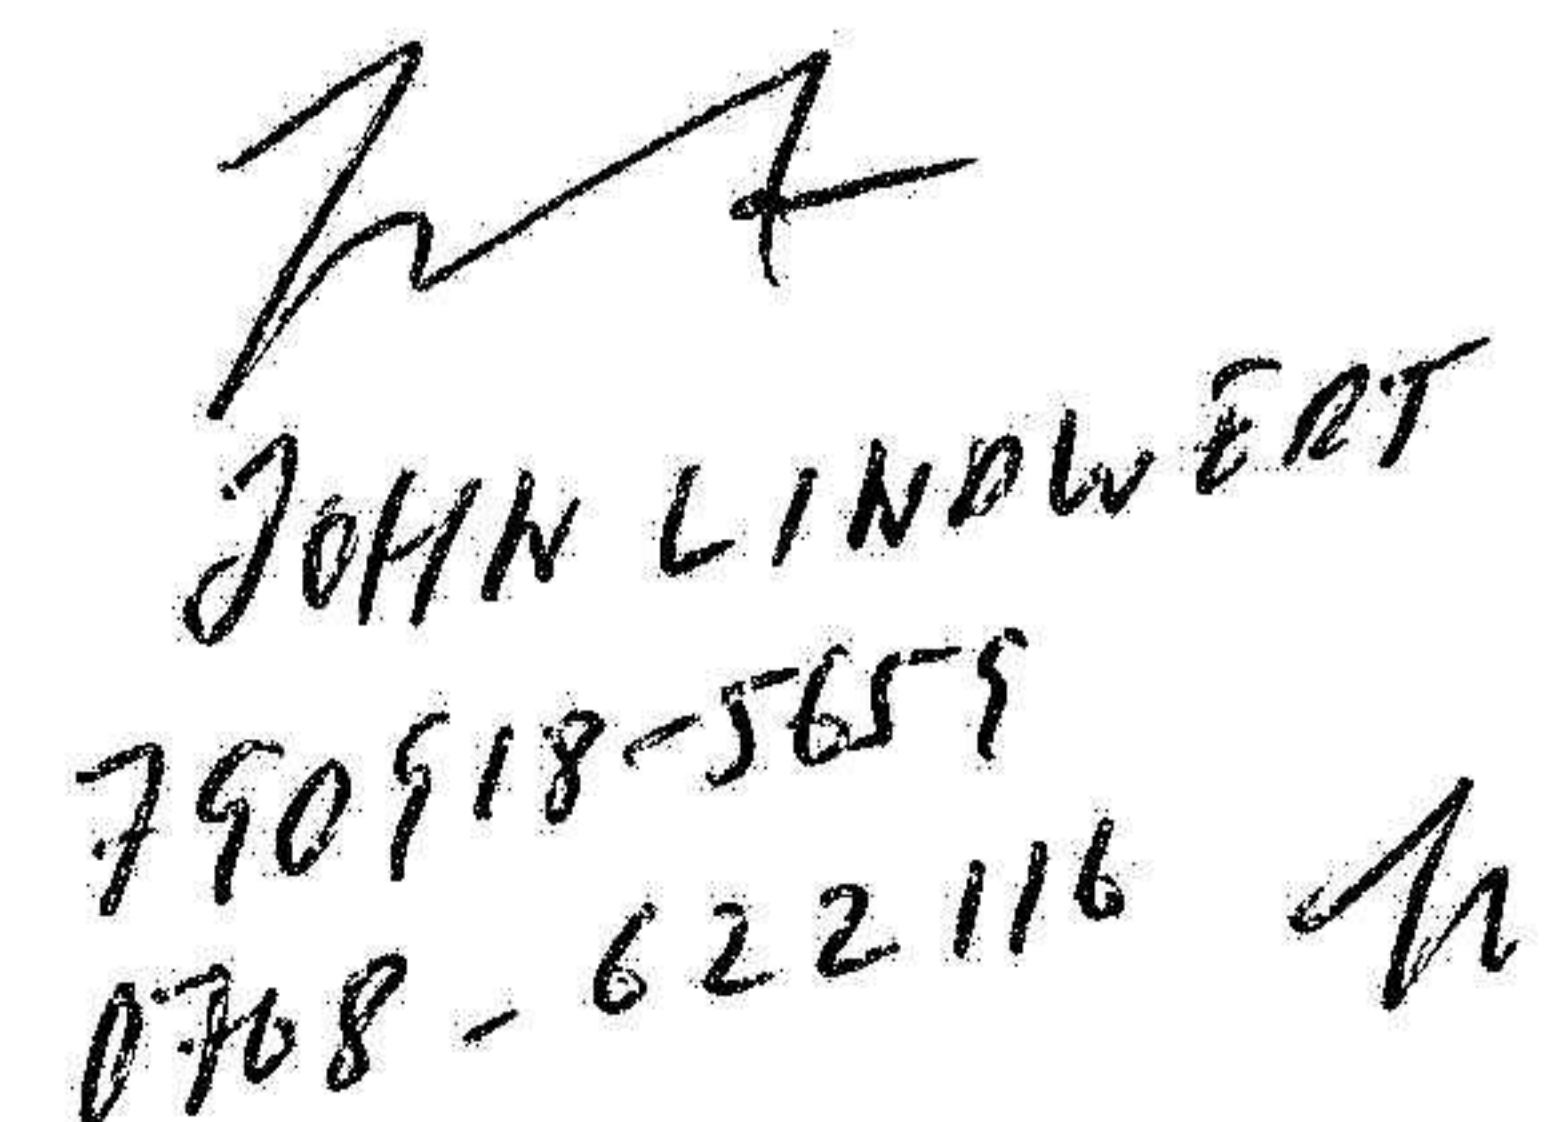 JOHN LINDWERT
790918-5659
0708-622116